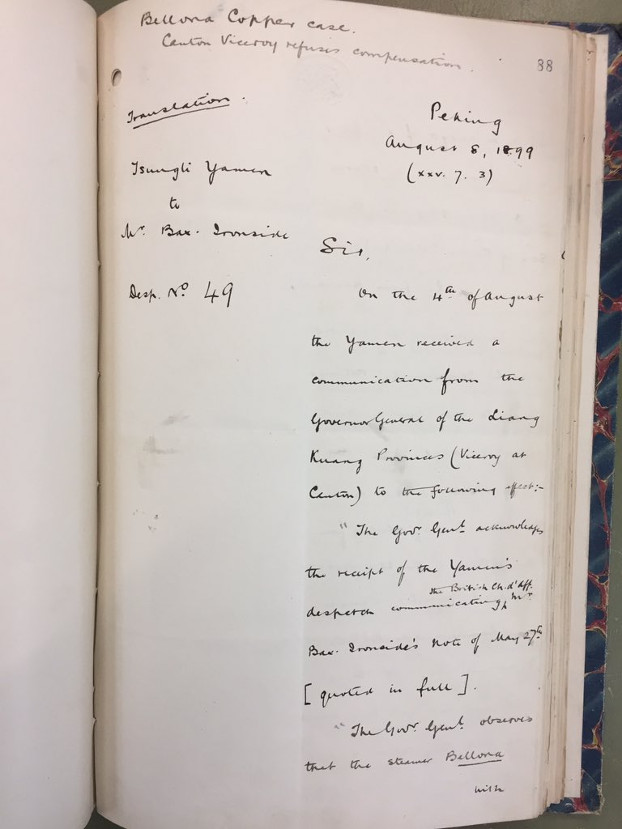 Bellona Copper case.
Canton Viceroy refuses compensation.
88
Translation.
Peking
August 8, 1899
(xxv. 7. 3)
Tsungli Yamen
to
Mr. Bax-Ironside
Sir,
Desp. No 49
On the 4th of August
the Yamen received a
communication from the
Governor General of the Liang
Kuang Provinces (Viceroy at
Canton) to the following effect:-
"The Govr. Genl. acknowledges
the receipt of the Yamen's
the British Ch. d'Aff.
despatch communicating Mr
Bax-Ironside's Note of May 27th
[quoted in full].
"The Govr. Genl. observes
that the steamer Bellona
with